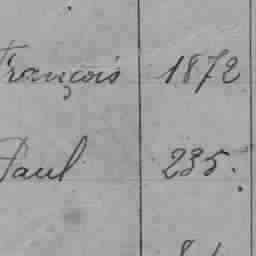 François 1872
Paul 235.